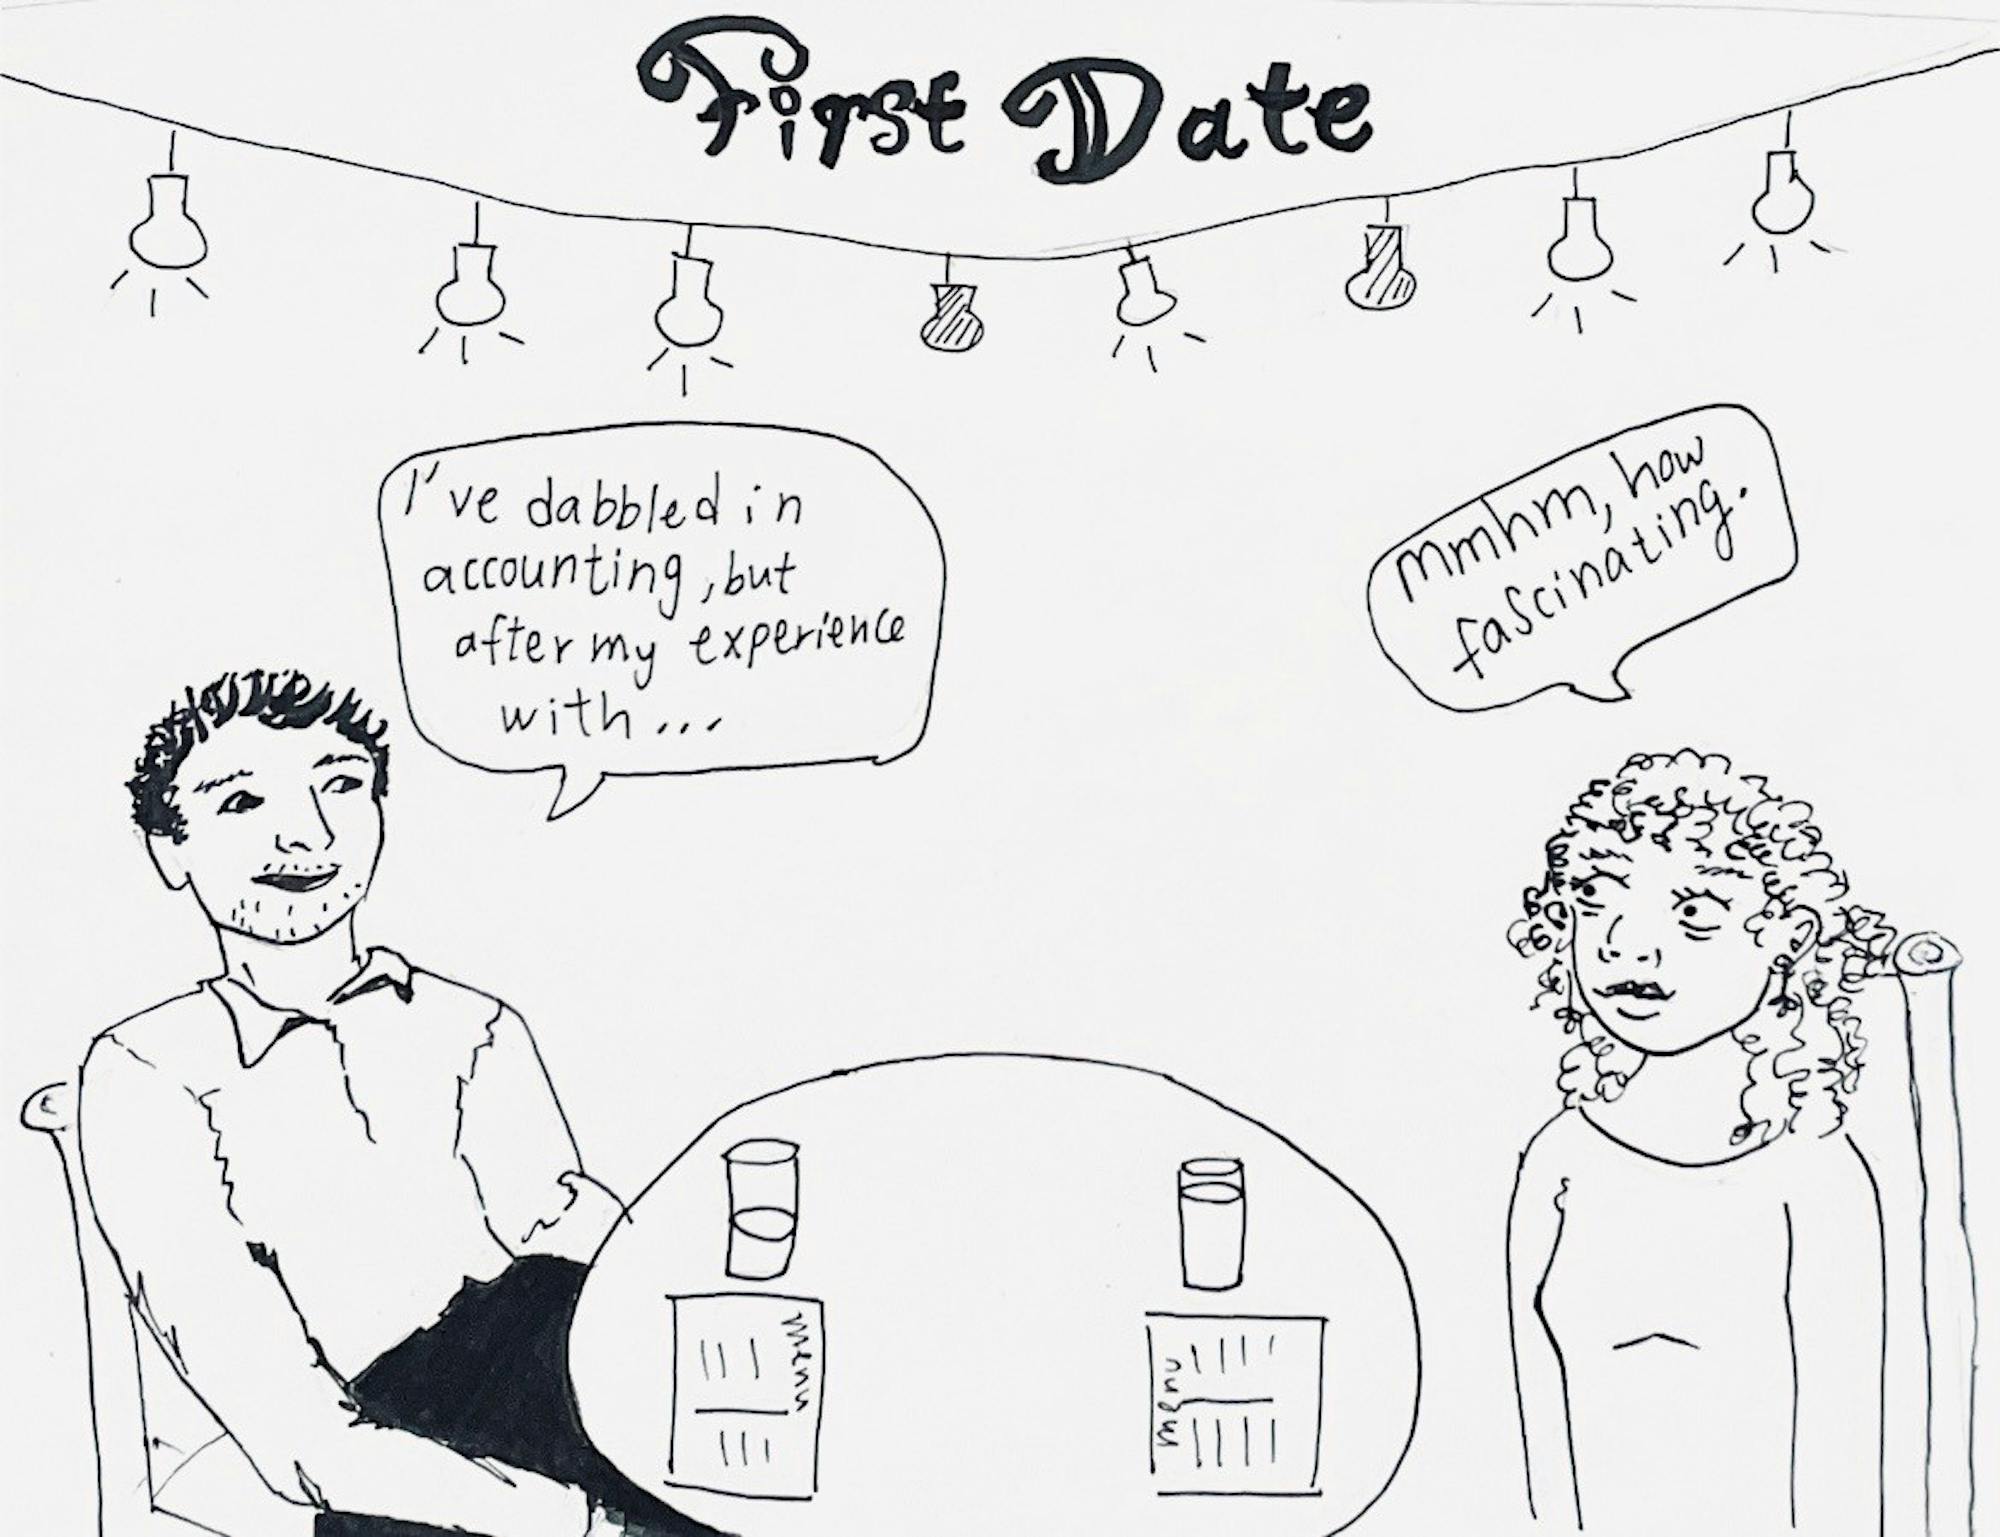 First Date
I've dabbled in
accounting, but
after my experience
with...
mmhm, how
fascinating.
menu
menu